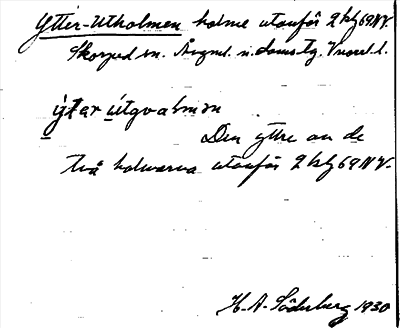 Ytter-Utholmen holme utanför 2 kbg 69 NV.
Skorped sn. Ångml. n. doms. Vnorrl. l.
ýtər útgvalmən
Den yttre av de
två holmarna utanför 2 kbg 69 NV.
H. A. Söderberg 1930